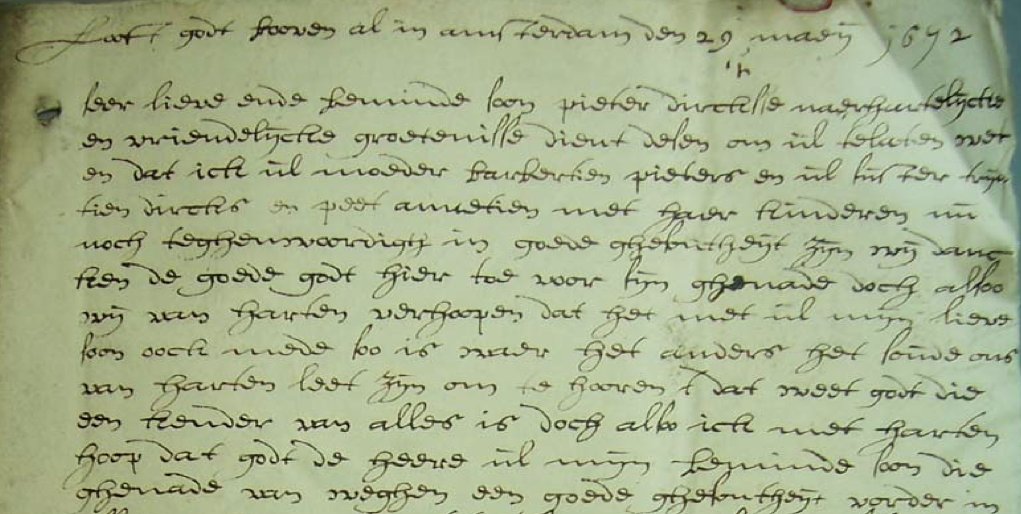 Looft godt booven al in amsterdam den 29 maeij 1672
seer lieve ende beminde soon pieter dirckse naer hartelijcke
en vriendelijcke groetenisse dient desen om ul te laten wet
en dat ick ul moeder barbertien pieters en ul suster trijn
tien dircks en peet annetien met haer kinderen nu
noch teghenwoordigh in goede ghesontheijt zijn wij danc
ken de goede godt hier toe voor sijn ghenade doch alsoo
wij van harten verhoopen dat het met ul mijn lieve
soon oock mede soo is waer het anders het soude ons
van harten leet zijn om te hooren dat weet godt die
een kender van alles is doch also ick met harten
hoop dat godt de heere ul mijn beminde soon die
ghenade van weghen een goede ghesontheijt vorder in